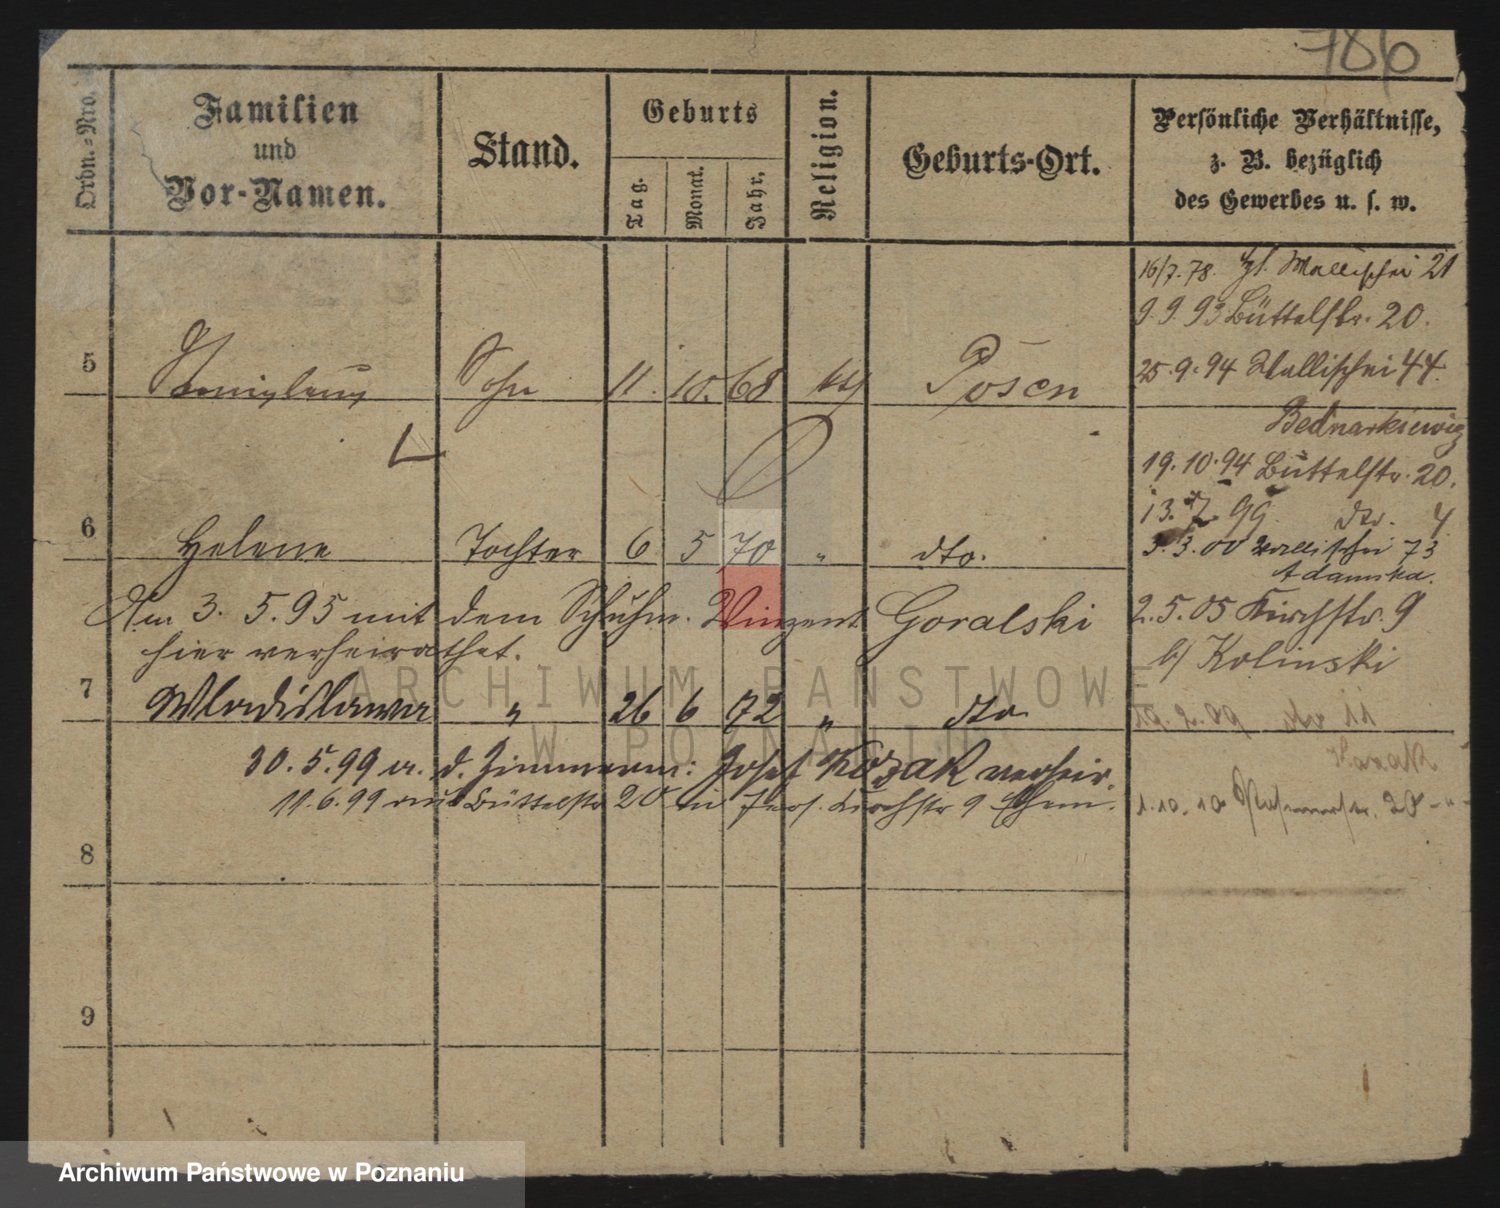 786
Ordn.-Nro.
Familien
und
Vor-Namen.
Stand.
Geburts
Tag.
Monat.
Jahr.
Religion.
Geburts-Ort.
Persönliche Verhältnisse,
z. B. bezüglich
des Gewerbes u. s. w.
16/7.78. Wallischei 21
9.9.93 Büttelstr. 20.
5 Sohn 11. 10. 68 kth Posen
25.9.94 Wallischei 44.
Bednarkiewicz
19.10.94 Büttelstr. 20.
13.7.99 dto. 4
6 Helene Tochter 6 5 70 " dto.
3.3.00 Wallischei 73
Adamska.
Am 3. 5. 95 mit dem Schuhm. Vinzent Goralski
hier verheirathet.
2.5.05 Kirchstr. 9
b/ Kolinski
7 Wladislawa " 26 6 72 " dto
19.2.09 dto 11
Kozak
30.5.99 m. d. Zimmerm: Josef Kozak verheir.
11.6.99 Büttelstr 20 Kirchstr 9 Ehem.
1.10.10 20 - " -
8
9
ARCHIWUM PAŃSTWOWE
W POZNANIU
Archiwum Państwowe w Poznaniu